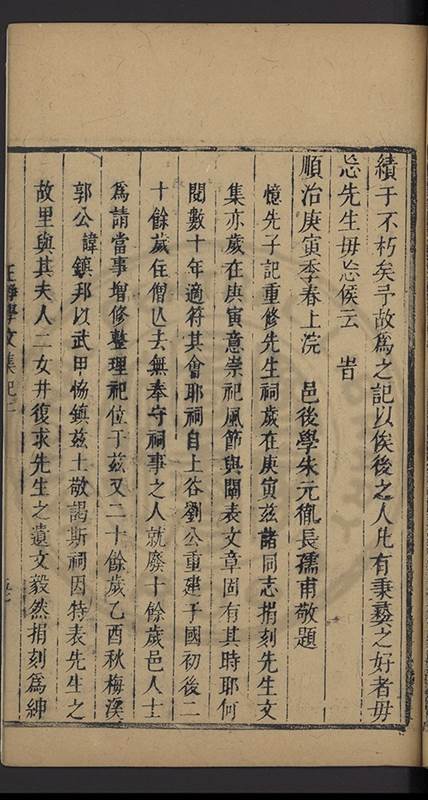 績于不朽矣予故為之記以俟後之人凡有秉彝之好者毋
忘先生毋忘侯云　旹
順治庚寅季春上浣　邑後學朱元㣧長孺甫敬題
憶先子記重修先生祠歲在庚寅茲諸同志捐刻先生文
集亦歲在庚寅意崇祀風節與闡表文章固有其時耶何
閱數十年適符其會耶祠自上谷劉公重建于國初後二
十餘歲住僧亾去無奉守祠事之人就廢十餘歲邑人士
為請當事增修整理祀位于茲又二十餘歲乙酉秋梅溪
郭公諱鎮邦以武甲協鎮茲土敬謁斯祠因特表先生之
故里與其夫人二女井復求先生之遺文毅然捐刻為紳
王靜學文集記